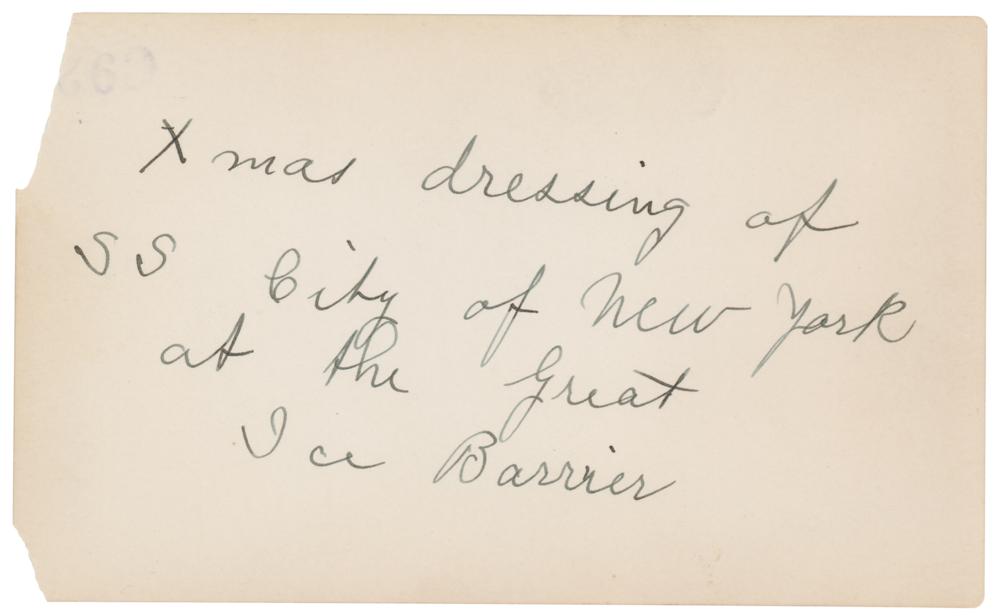 Xmas dressing of
SS City of New York
at the Great
Ice Barrier